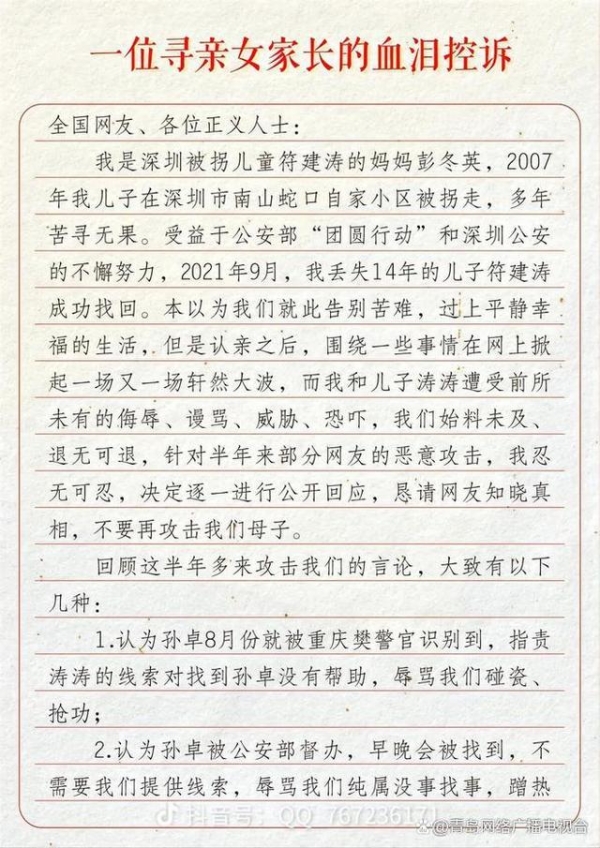 一位寻亲女家长的血泪控诉
全国网友、各位正义人士：
我是深圳被拐儿童符建涛的妈妈彭冬英，2007
年我儿子在深圳市南山蛇口自家小区被拐走，多年
苦寻无果。受益于公安部“团圆行动”和深圳公安
的不懈努力，2021年9月，我丢失14年的儿子符建涛
成功找回。本以为我们就此告别苦难，过上平静幸
福的生活，但是认亲之后，围绕一些事情在网上掀
起一场又一场轩然大波，而我和儿子涛涛遭受前所
未有的侮辱、谩骂、威胁、恐吓，我们始料未及、
退无可退，针对半年来部分网友的恶意攻击，我忍
无可忍，决定逐一进行公开回应，恳请网友知晓真
相，不要再攻击我们母子。
回顾这半年多来攻击我们的言论，大致有以下
几种：
1.认为孙卓8月份就被重庆樊警官识别到，指责
涛涛的线索对找到孙卓没有帮助，辱骂我们碰瓷、
抢功；
2.认为孙卓被公安部督办，早晚会被找到，不
需要我们提供线索，辱骂我们纯属没事找事，蹭热
抖音号：QQ_767236171
@青岛网络广播电视台